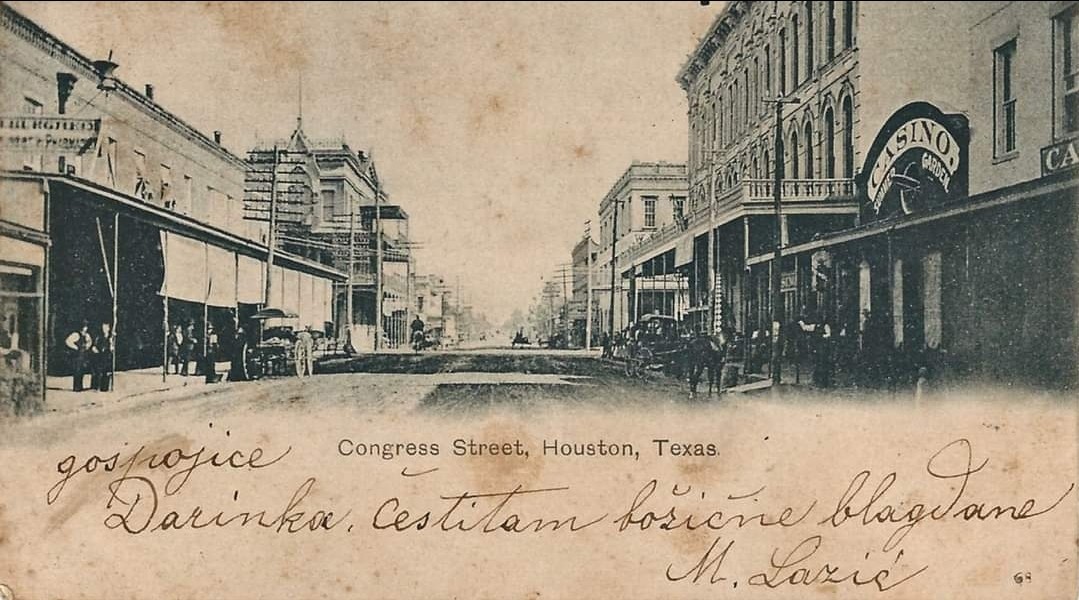 CASINO.
SUMMER GARDEN
CA
Congress Street, Houston, Texas.
gospojice
Darinka, čestitam božične blagdane
M. Lazić
68